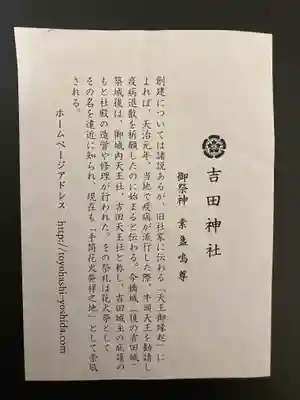 吉田神社
御祭神 素盞嗚尊
創建については諸説あるが、旧社家に伝わる「天王御縁起」に
よれば、天治元年、当地で疫病が流行した際、牛頭天王を勧請し
疫病退散を祈願したのに始まると伝わる。今橋城(後の吉田城)
築城後は、御城内天王社、吉田天王社と称し、吉田城主の庇護の
もと社殿の造営や修理が行われた。その祭礼は花火祭として
その名を遠近に知られ、現在も「手筒花火発祥之地」として崇敬
される。
ホームページアドレス http://toyohashi-yoshida.com